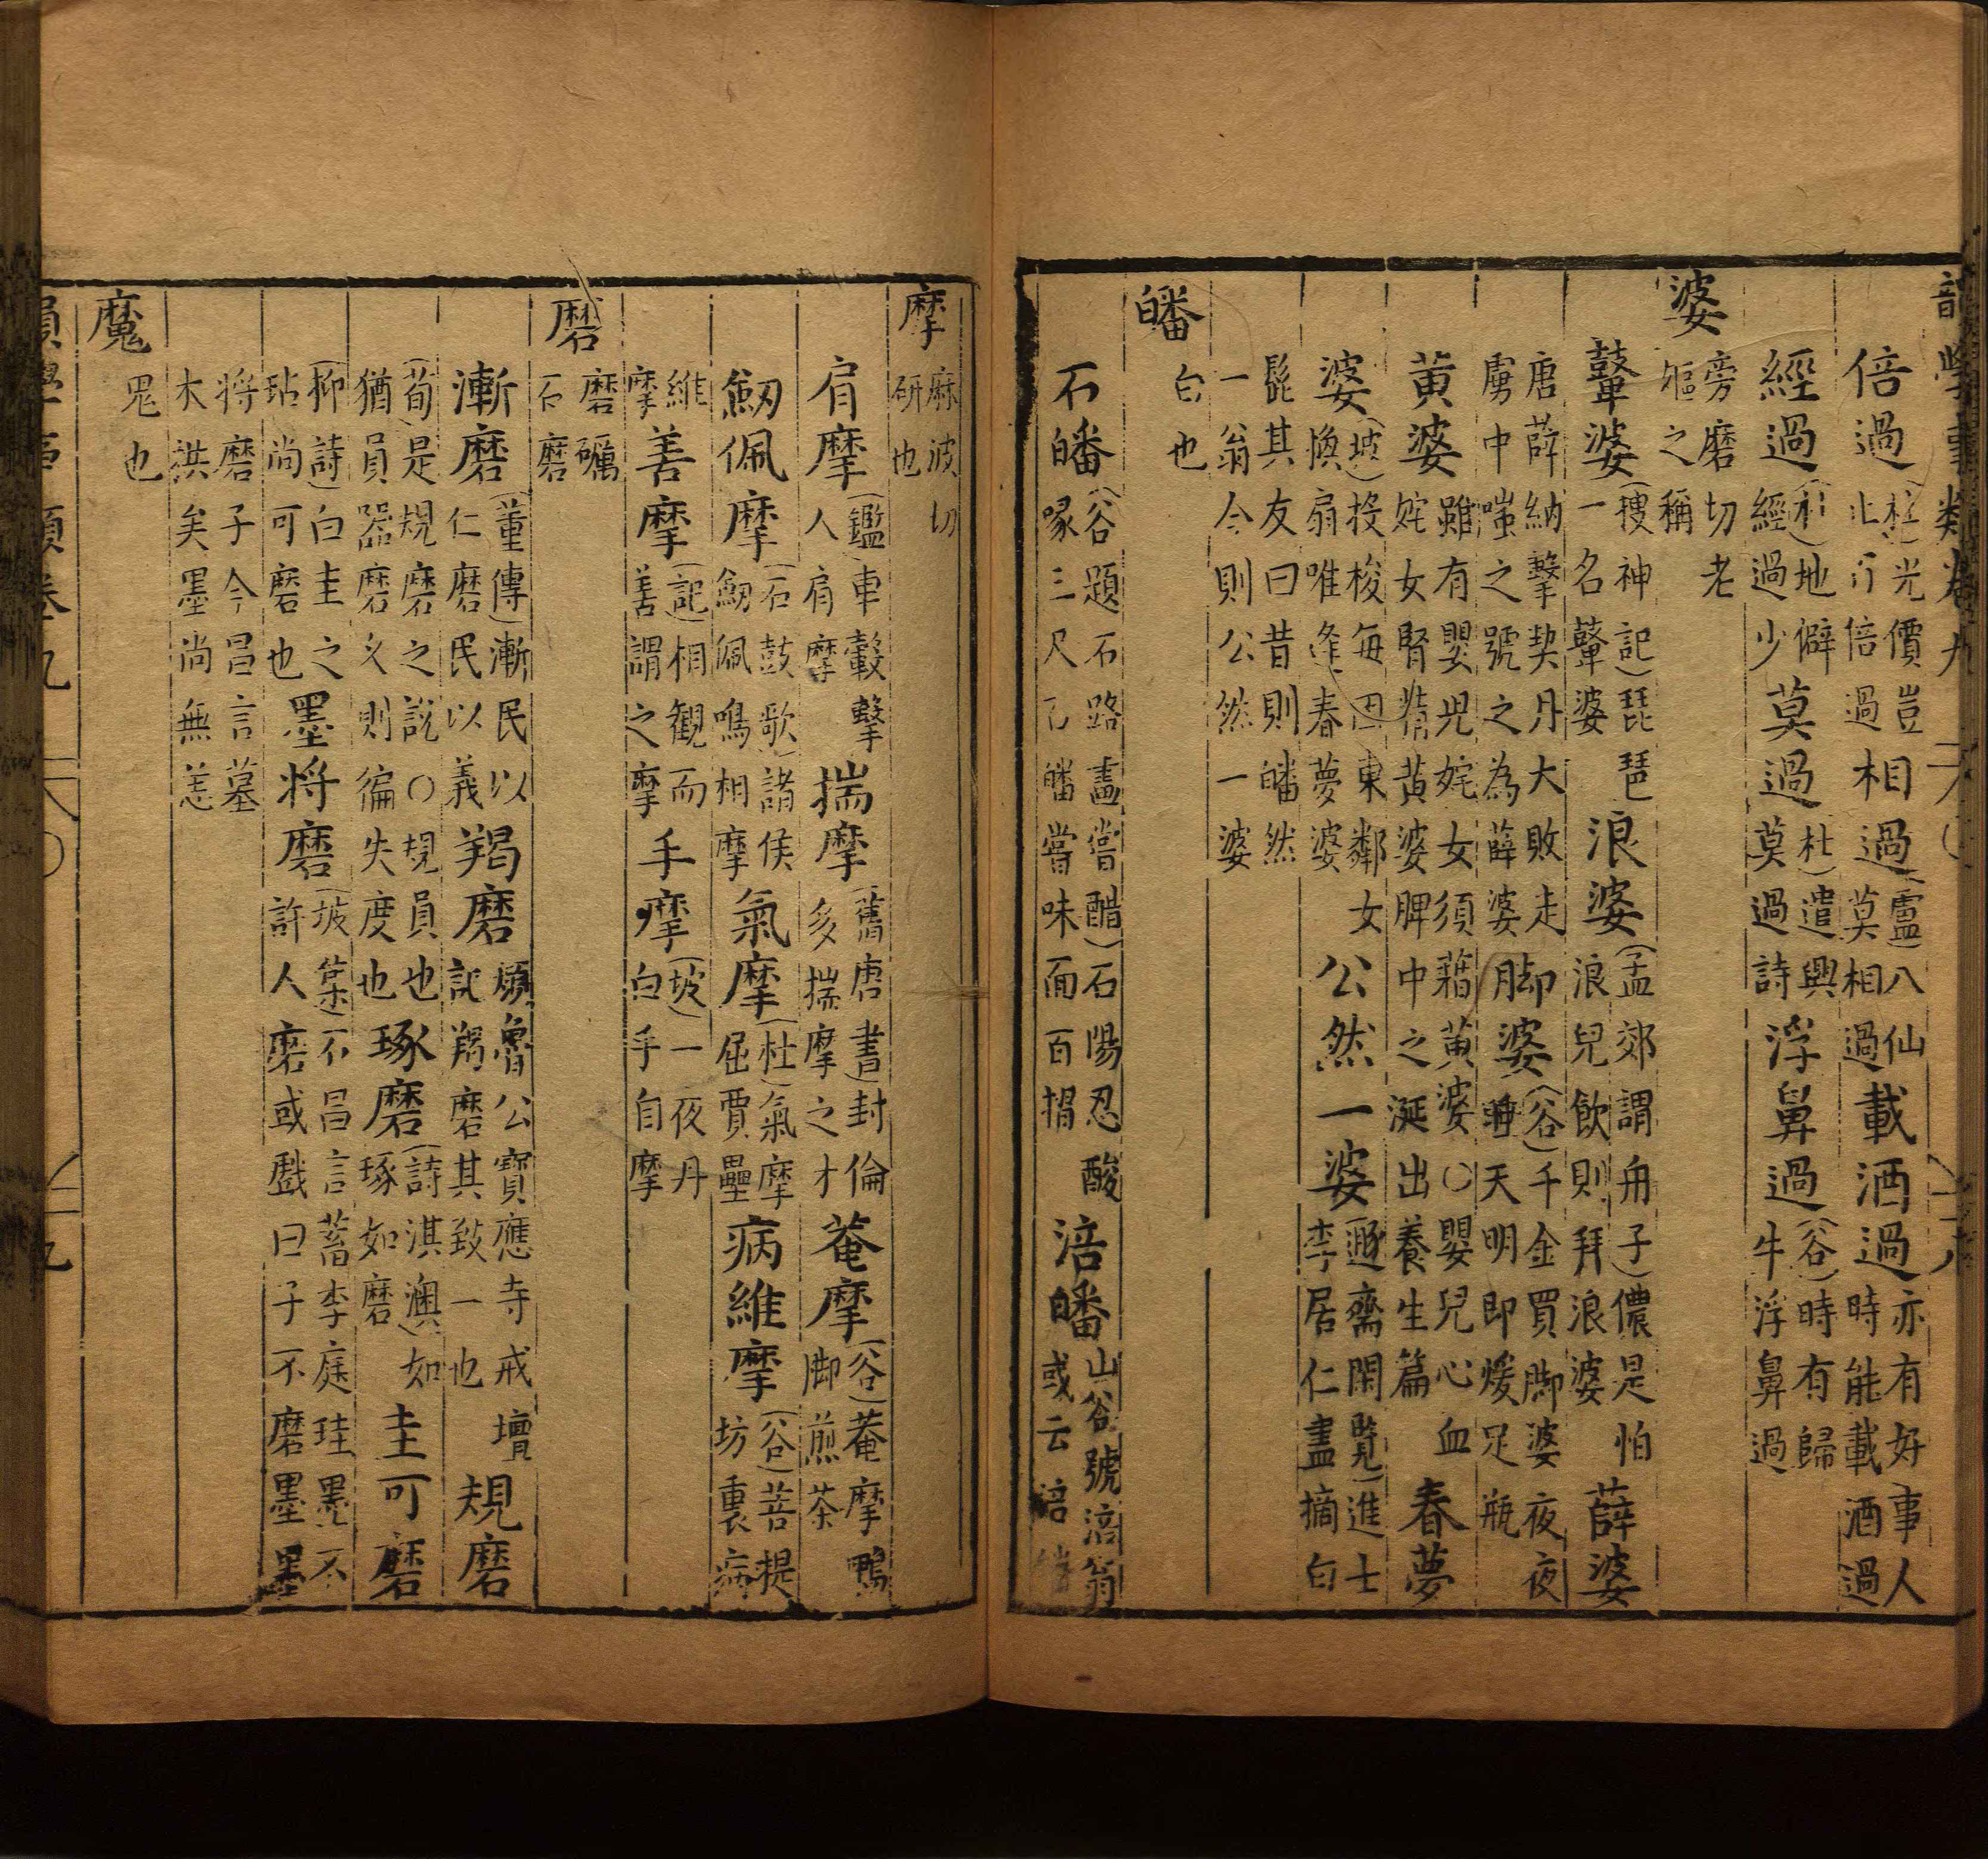 韻學事類卷九
倍過(杜)光價豈止行倍過相過(盧)八仙莫相過載酒過亦有好事人時能載酒過
經過(杜)地僻經過少莫過(杜)遣興莫過詩浮鼻過(谷)時有歸牛浮鼻過
婆旁磨切老嫗之稱
鼙婆(搜神記)琵琶一名鼙婆浪婆(孟郊謂舟子)儂是怕浪兒飲則拜浪婆薛婆
唐薛納擊契丹大敗走虜中嗤之號之為薛婆脚婆(谷)千金買脚婆夜夜睡天明即煖足瓶
黄婆雖有嬰兒姹女須藉黄婆○嬰兒心血姹女腎精黄婆脾中之涎出養生篇春夢
婆(坡)投梭每困東鄰女換扇唯逢春夢婆公然一婆(遯齋閑覽)進士李居仁盡摘白
髭其友曰昔則皤然一翁今則公然一婆
皤白也
石皤(谷題石路畫嘗醋)石陽忍酸喙三尺石皤嘗味面百摺涪皤山谷號涪翁或云涪皤
摩麻波切研也
肩摩(鑑)車轂擊人肩摩揣摩(舊唐書)封倫多揣摩之才菴摩(谷)菴摩鴨脚煎茶
劒佩摩(石鼓歌)諸侯劒佩鳴相摩氣摩(杜)氣摩屈賈壘病維摩(谷)菩提坊裏病
維摩善摩(記)相観而善謂之摩手摩(坡)一夜丹白手自摩
磨磨礪石磨
漸磨(董傳)漸民以仁磨民以義羯磨顏魯公寶應寺戒壇記羯磨其致一也規磨
(荀)是規磨之說○規員也猶員器磨久則徧失度也琢磨(詩淇澳)如琢如磨圭可磨
(抑詩)白圭之玷尚可磨也墨将磨(坡箓)不昌言蓄李庭珪墨不許人磨或戲曰子不磨墨墨
将磨子今昌言墓木洪矣墨尚無恙
魔鬼也
韻學事類卷九